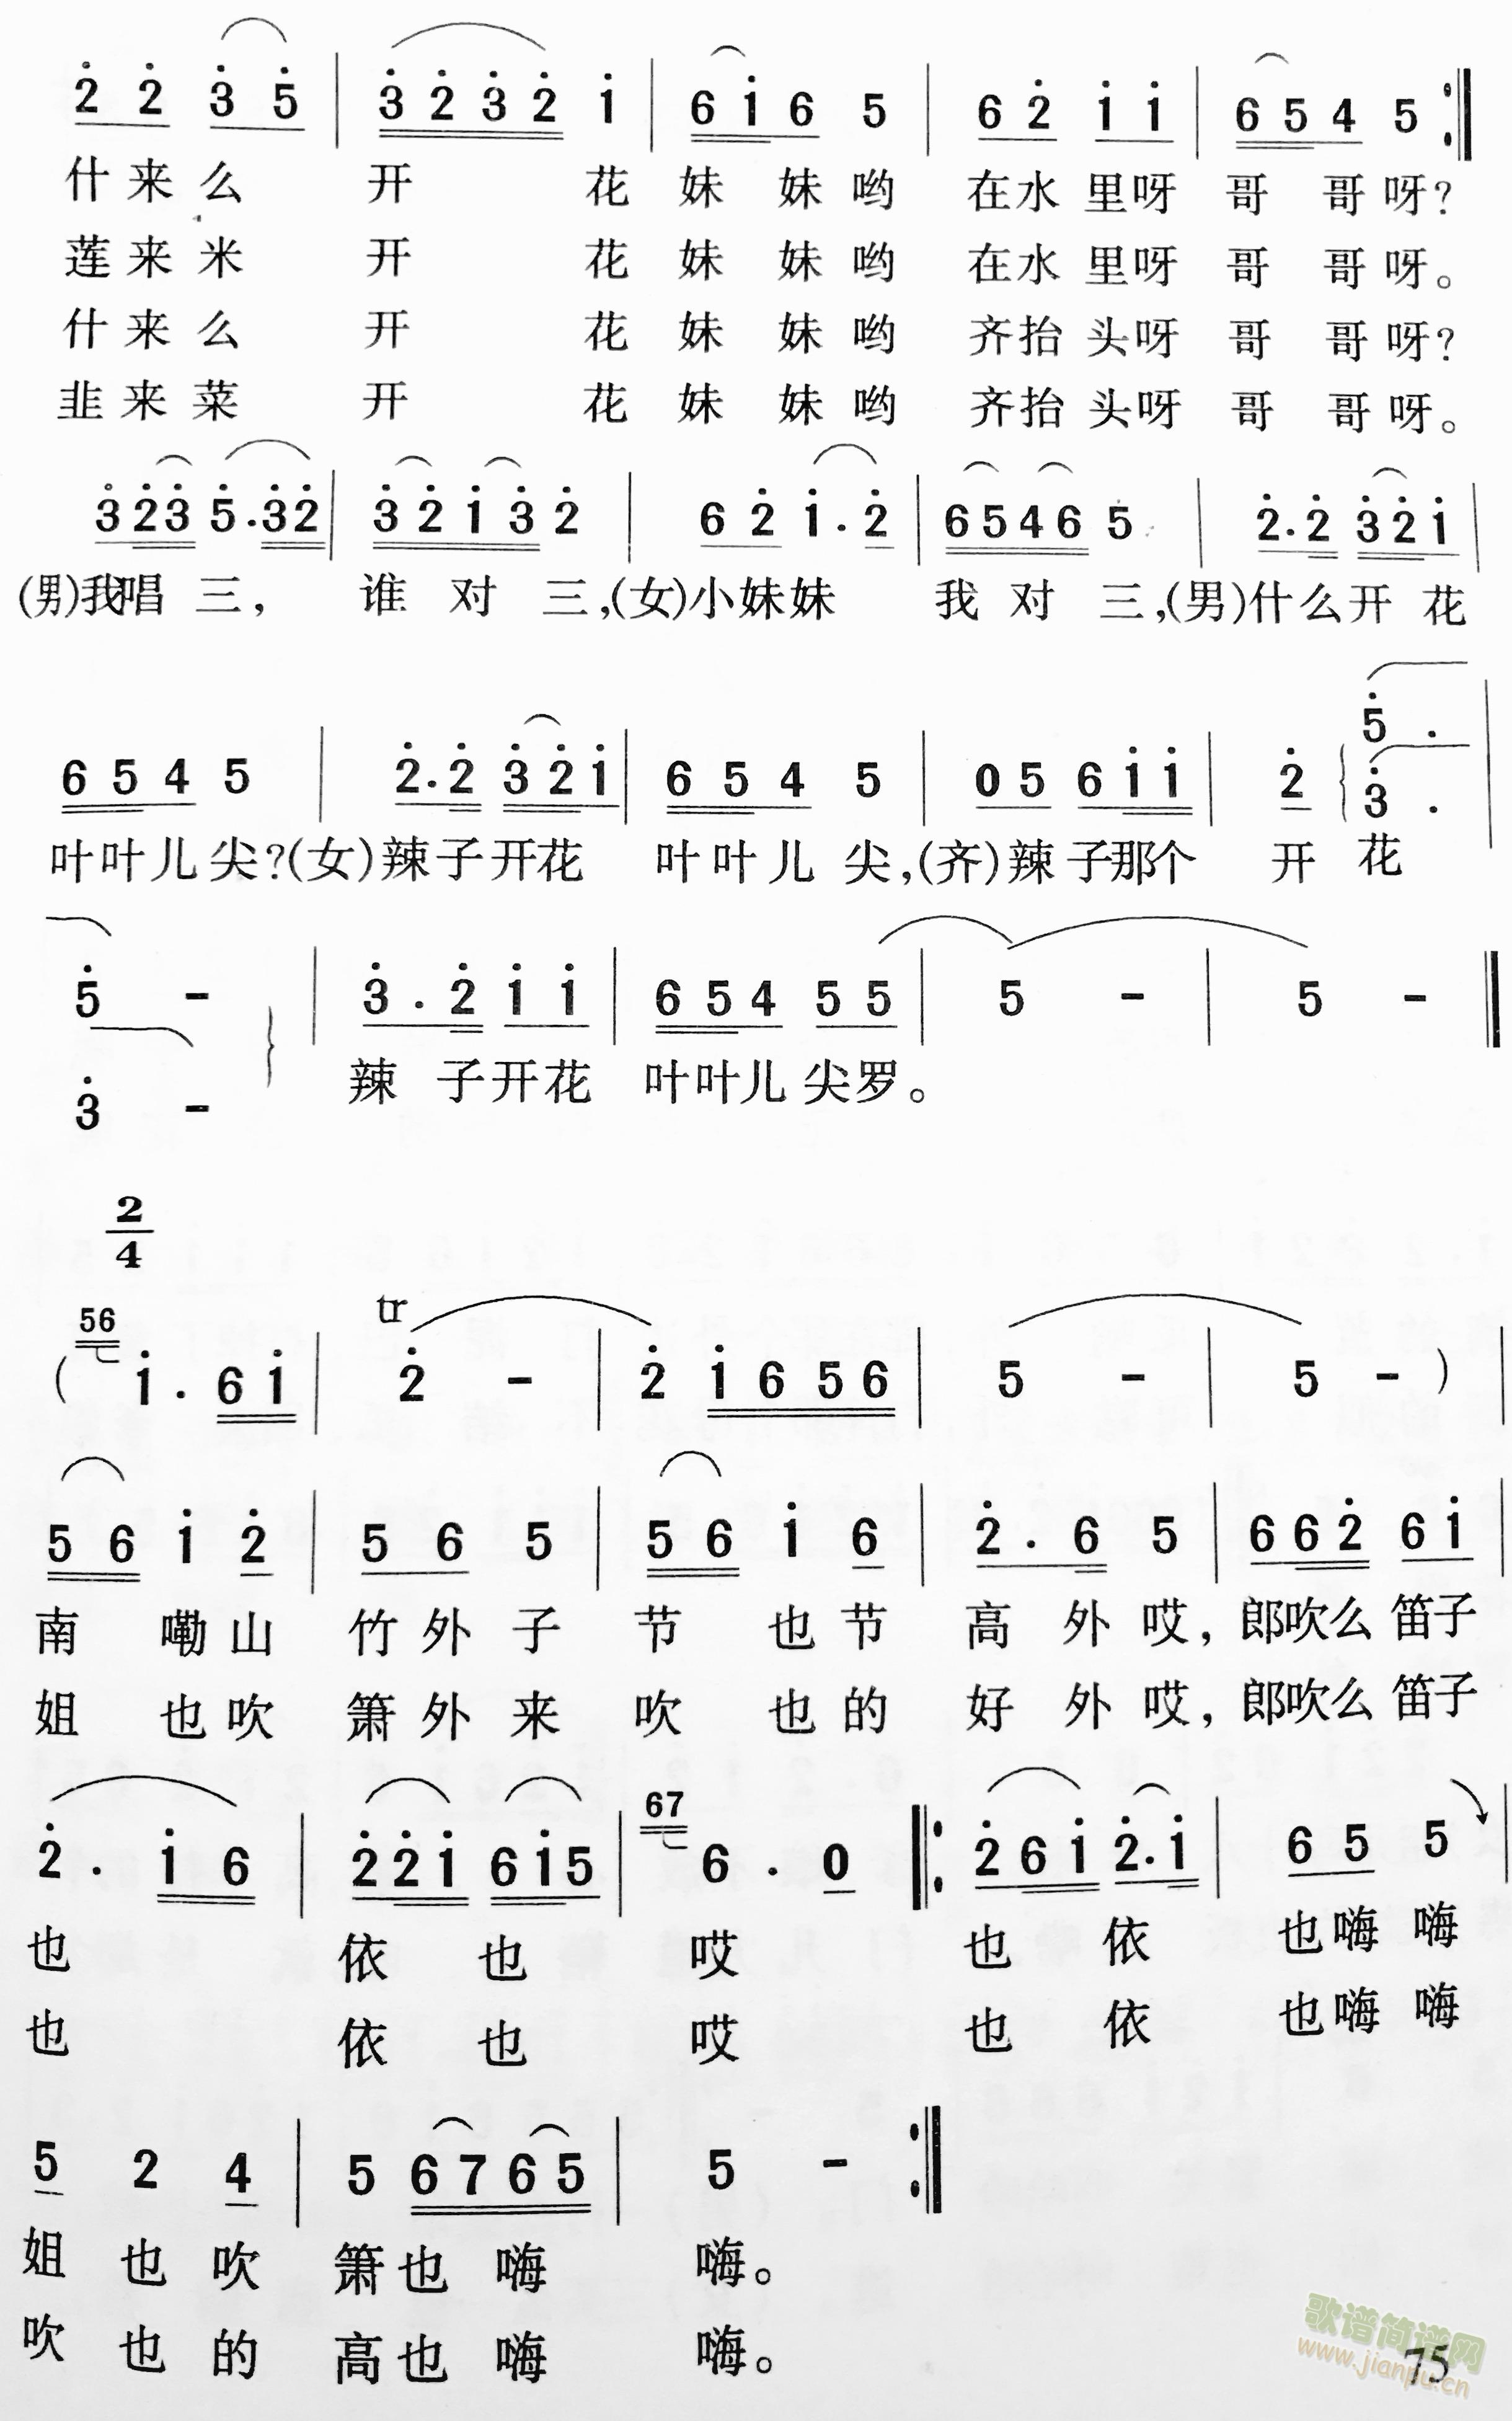 2 2 3 5 | 3 2 3 2 1 | 6 1 6 5 | 6 2 1 1 | 6 5 4 5 :|
什来么 开 花 妹 妹哟 在水里呀 哥 哥呀?
莲来米 开 花 妹 妹哟 在水里呀 哥 哥呀。
什来么 开 花 妹 妹哟 齐抬头呀 哥 哥呀?
韭来菜 开 花 妹 妹哟 齐抬头呀 哥 哥呀。
3 2 3 5 . 3 2 | 3 2 1 3 2 | 6 2 1 . 2 | 6 5 4 6 5 | 2 . 2 3 2 1 |
(男)我唱 三, 谁 对 三,(女)小妹妹 我 对 三,(男)什么开 花
5 .
6 5 4 5 | 2 . 2 3 2 1 | 6 5 4 5 | 0 5 6 1 1 | 2 3 . |
叶叶儿 尖?(女)辣子开花 叶叶儿 尖,(齐)辣 子那个 开 花
5 - | 3 . 2 1 1 | 6 5 4 5 5 | 5 - | 5 - ‖
辣 子开花 叶叶儿 尖罗。
3 -
2
4
56 tr
( 1 . 6 1 | 2 - | 2 1 6 5 6 | 5 - | 5 - ) |
5 6 1 2 | 5 6 5 | 5 6 1 6 | 2 . 6 5 | 6 6 2 6 1 |
南 嘞山 竹 外 子 节 也节 高 外 哎, 郎吹么 笛子
姐 也吹 箫 外 来 吹 也的 好 外 哎, 郎吹么 笛子
67
2 . 1 6 | 2 2 1 6 1 5 | 6 . 0 |: 2 6 1 2 . 1 | 6 5 5 |
也 依 也 哎 也 依 也嗨 嗨
也 依 也 哎 也 依 也嗨 嗨
5 2 4 | 5 6 7 6 5 | 5 - :|
姐 也 吹 箫也 嗨 嗨。
吹 也 的 高也 嗨 嗨。
歌谱简谱网
www.jianpu.cn
75